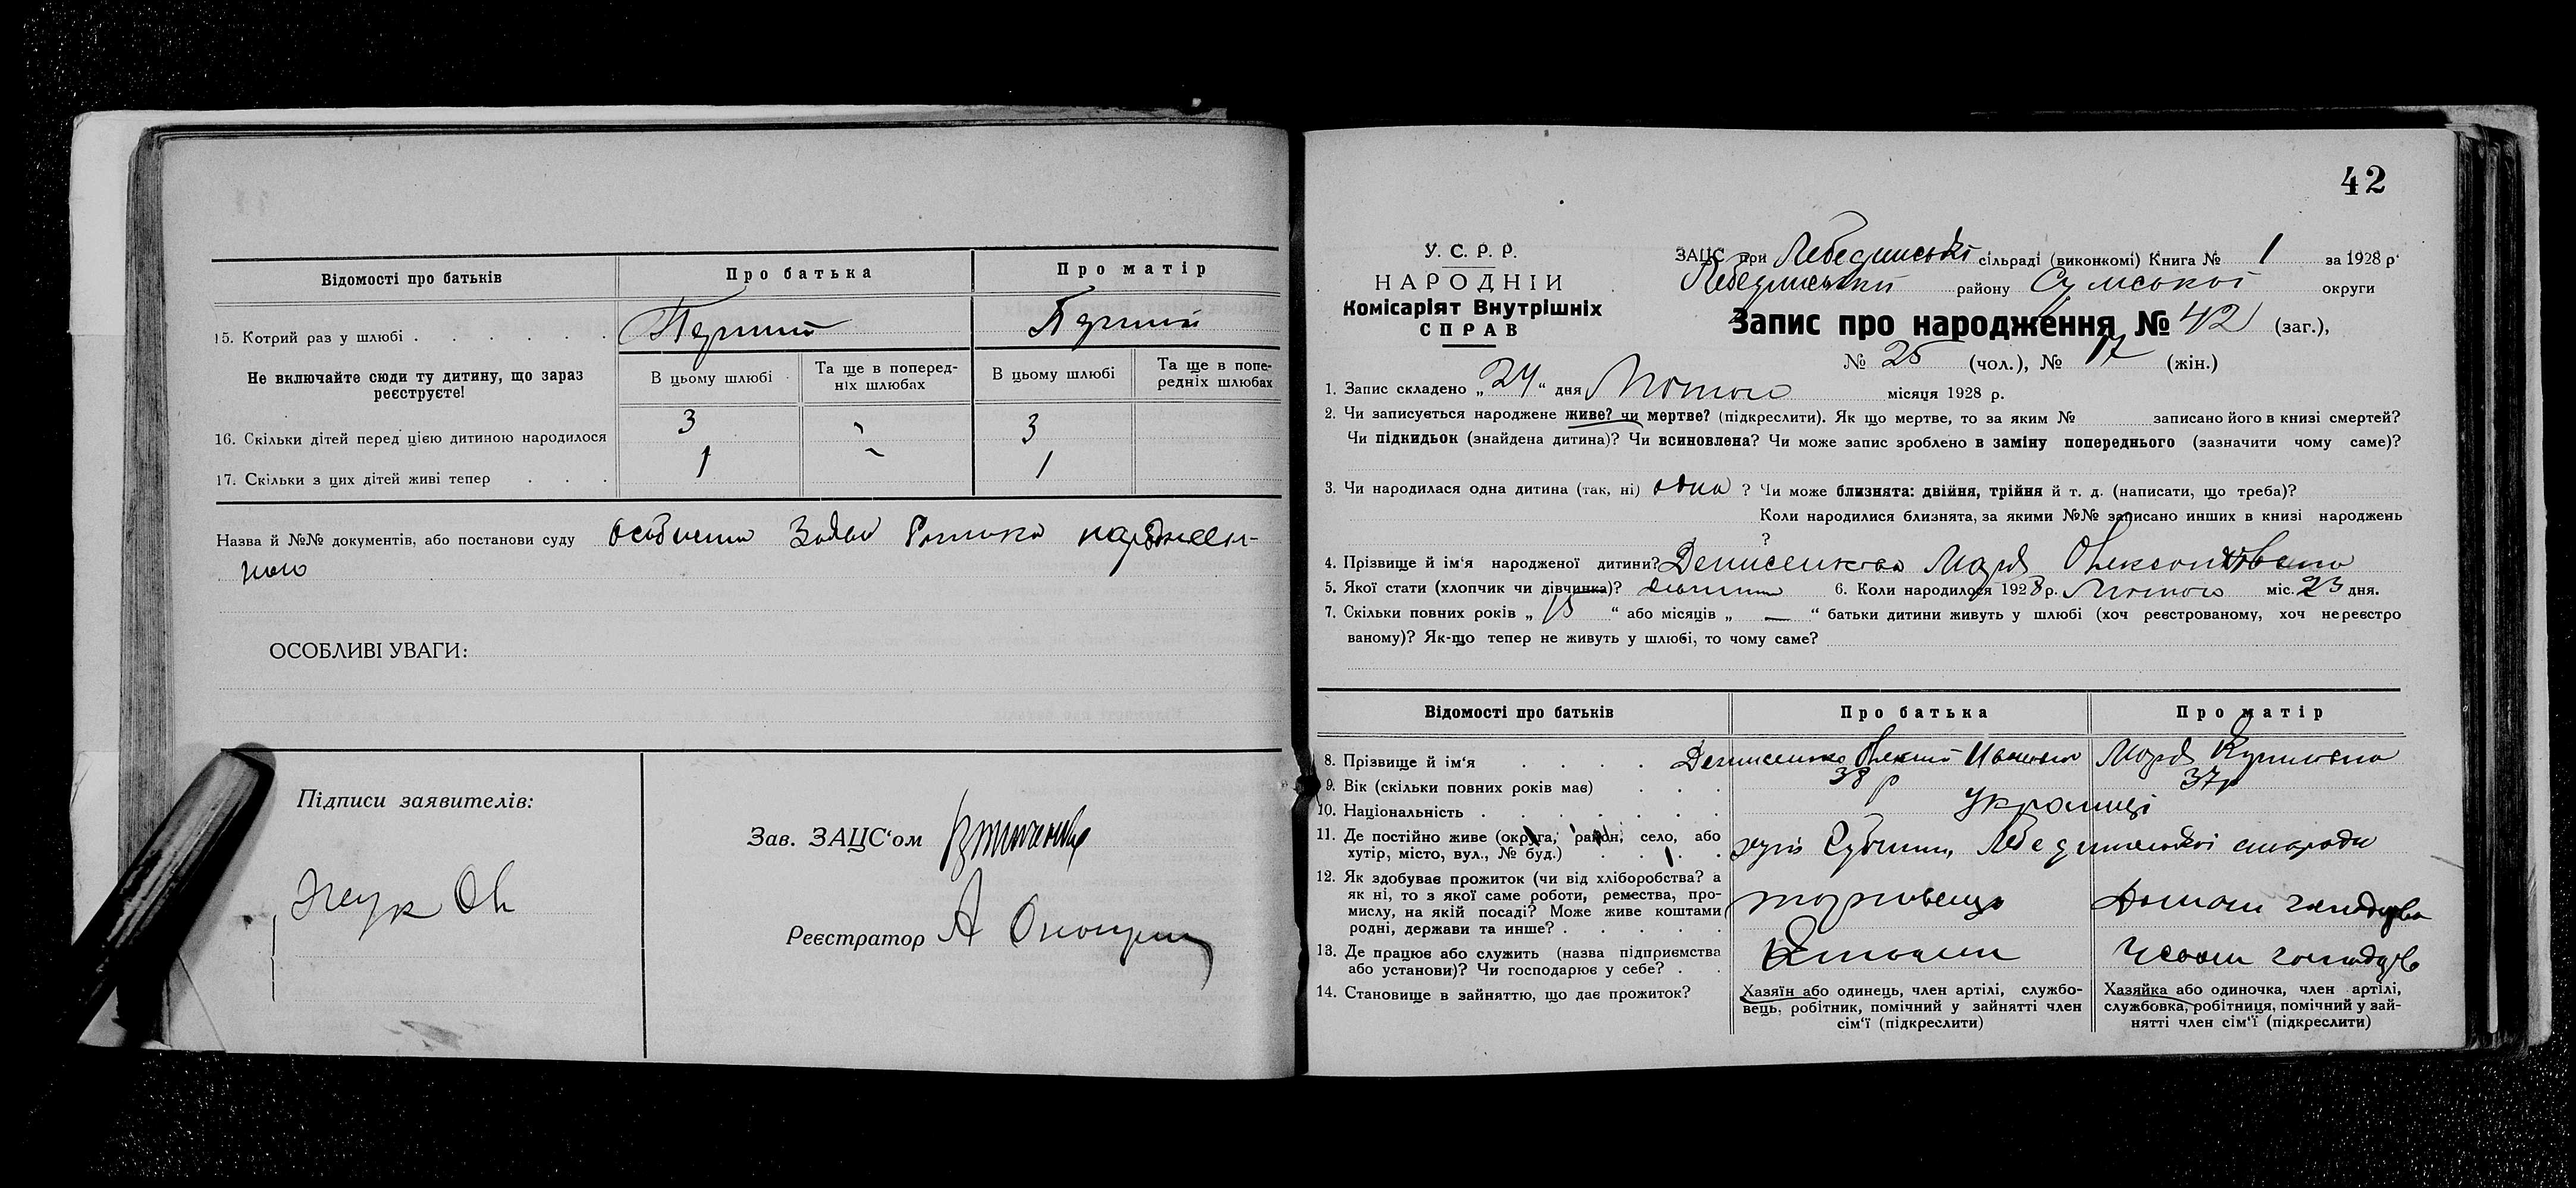 Відомості про батьків
Про батька
Про матір
15. Котрий раз у шлюбі
Перший
Перший
Не включайте сюди ту дитину, що зараз
реєструєте!
В цьому шлюбі
Та ще в поперед-
ніх шлюбах
В цьому шлюбі
Та ще в попе-
редніх шлюбах
16. Скільки дітей перед цією дитиною народилося
3
3
17. Скільки з цих дітей живі тепер
1
1
Назва й №№ документів, або постанови суду
ОСОБЛИВІ УВАГИ:
Підписи заявителів:
Зав. ЗАЦС‘ом
Реєстратор А
42
У. С. Р. Р.
НАРОДНІЙ
Комісаріят Внутрішніх
СПРАВ
ЗАЦС при Лебединській сільраді (виконкомі) Книга № 1 за 1928 р.
Лебединський району Сумської округи
Запис про народження № 42 (заг.),
№ 25 (чол.), № 17 (жін.)
1. Запис складено „ 24 “ дня Лютого місяця 1928 р.
2. Чи записується народжене живе? чи мертве? (підкреслити). Як що мертве, то за яким № записано його в книзі смертей?
Чи підкидьок (знайдена дитина)? Чи всиновлена? Чи може запис зроблено в заміну попереднього (зазначити чому саме)?
3. Чи народилася одна дитина (так, ні) одна ? Чи може близнята: двійня, трійня й т. д. (написати, що треба)?
Коли народилися близнята, за якими №№ записано инших в книзі народжень
?
4. Прізвище й ім‘я народженої дитини? Денисенкова Марія
5. Якої стати (хлопчик чи дівчинка)? 6. Коли народилося 1928 р. Лютого міс. 23 дня.
7. Скільки повних років „ “ або місяців „ — “ батьки дитини живуть у шлюбі (хоч реєстрованому, хоч нереєстро
ваному)? Як-що тепер не живуть у шлюбі, то чому саме?
Відомості про батьків
Про батька
Про матір
8. Прізвище й ім‘я
Денисенко
Марія
9. Вік (скільки повних років має)
38 р
37 р
10. Національність
Українці
11. Де постійно живе (округа, район, село, або
хутір, місто, вул., № буд.)
12. Як здобуває прожиток (чи від хліборобства? а
як ні, то з якої саме роботи, ремества, про-
мислу, на якій посаді? Може живе коштами
родні, держави та инше?
13. Де працює або служить (назва підприємства
або установи)? Чи господарює у себе?
14. Становище в зайняттю, що дає прожиток?
Хазяїн або одинець, член артілі, службо-
вець, робітник, помічний у зайнятті член
сім‘ї (підкреслити)
Хазяйка або одиночка, член артілі,
службовка, робітниця, помічний у зай-
нятті член сім‘ї (підкреслити)